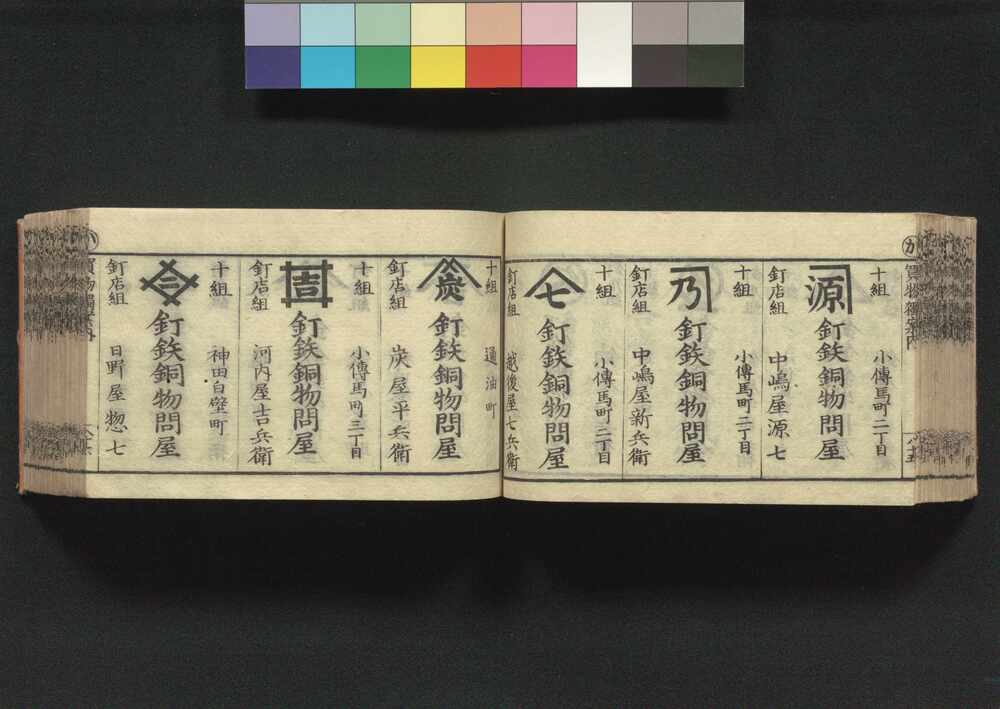 十組
小傳馬町二丁目
源
釘鉄銅物問屋
釘店組
中嶋屋源七
十組
小傳馬町二丁目
乃
釘鉄銅物問屋
釘店組
中嶋屋新兵衛
十組
小傳馬町二丁目
七
釘鉄銅物問屋
釘店組
越後屋七兵衛
十組
通油町
炭
釘鉄銅物問屋
釘店組
炭屋平兵衛
十組
小傳馬町三丁目
吉
釘鉄銅物問屋
釘店組
河内屋吉兵衛
十組
神田白壁町
釘鉄銅物問屋
釘店組
日野屋惣七